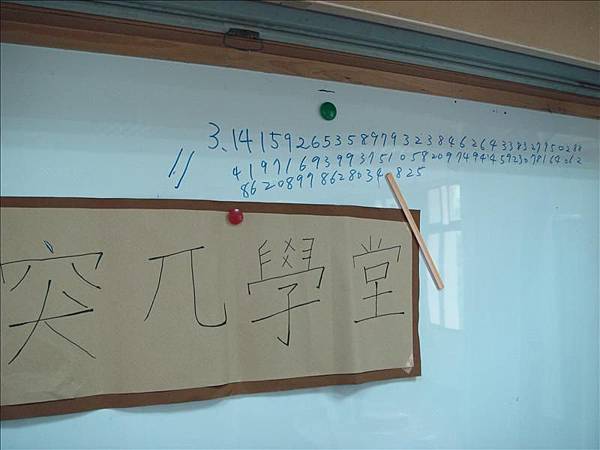 3、14159265358979323846264338327950288
〃 41971693993751058209749445923078164062
86208998628034825
突兀學堂